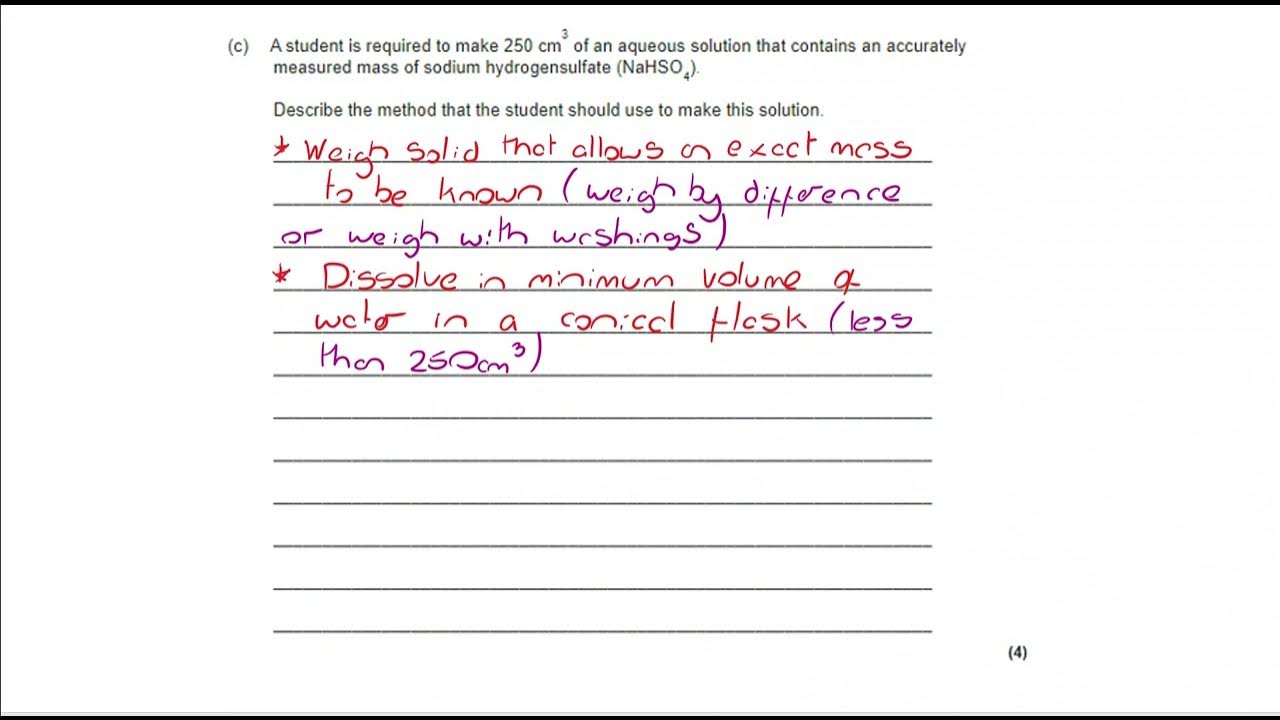 (c) A student is required to make 250 cm³ of an aqueous solution that contains an accurately
measured mass of sodium hydrogensulfate (NaHSO₄).
Describe the method that the student should use to make this solution.
* Weigh solid that allows an exact mass
to be known (weigh by difference
or weigh with washings)
* Dissolve in minimum volume of
water in a conical flask (less
than 250cm³)
(4)